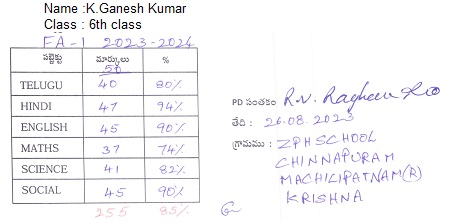 Name :K.Ganesh Kumar
Class : 6th class
FA-1 2023-2024
సబ్జెక్టు మార్కులు 50 %
TELUGU 40 80%
HINDI 47 94%
ENGLISH 45 90%
MATHS 37 74%
SCIENCE 41 82%
SOCIAL 45 90%
255 85%
PD సంతకం R.V. Raghava Rao
తేది : 26.08.2023
గ్రామము : ZPHSCHOOL
CHINNAPURAM
MACHILIPATNAM(R)
KRISHNA